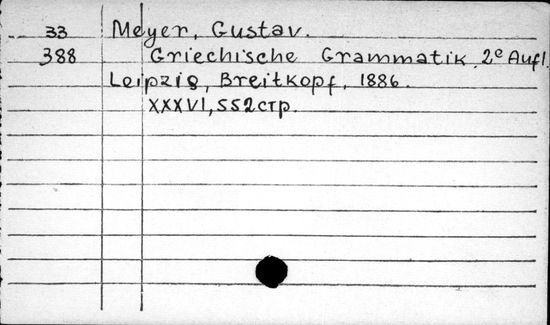 33 Meyer, Gustav.
388 Griechische Grammatik. 2e Aufl.
Leipzig, Breitkopf, 1886.
XXXVI, 552 стр.